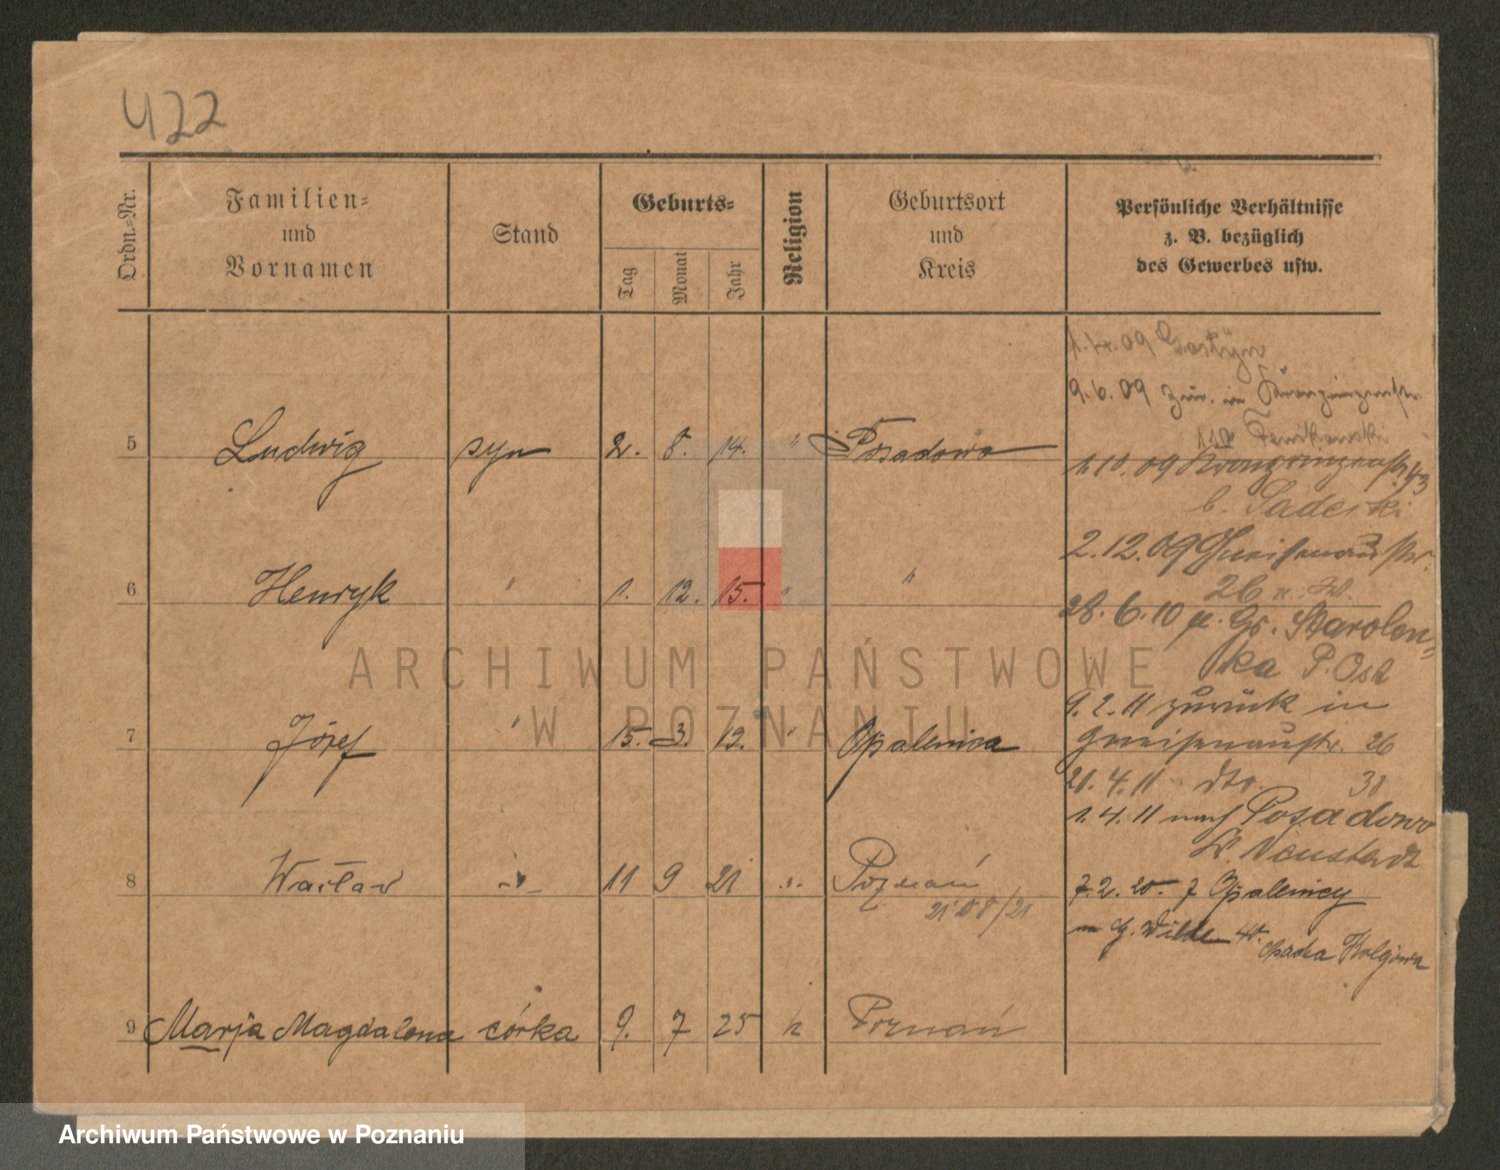 422
Ordn.-Nr.
Familien-
und
Vornamen
Stand
Geburts-
Tag
Monat
Jahr
Religion
Geburtsort
und
Kreis
Persönliche Verhältnisse
z. B. bezüglich
des Gewerbes usw.
1.4.09 Gostyn
9.6.09 zur. in Kronprinzenstr.
5 Ludwig syn 2. 8. 14. " Posadowo
1.10.09 Kronprinzenstr. 43
b. Sadecki
2.12.09 Gneisenaustr.
26
6 Henryk " 1. 12. 15. " "
28.6.10 Gr. Starolen-
ka P. Ost
9.2.11 zurück in
7 Józef " 15. 3. 12. " Opalenica
Gneisenaustr. 26
21.4.11 dto. 30
1.4.11 nach Posadowo
Kr. Neustadt
8 Wacław -"- 11 9 21 " Poznań
7.2.20. z Opalenicy
G. Wilde
9 Marja Magdalena córka 9. 7 25 k Poznań
ARCHIWUM PAŃSTWOWE
W POZNANIU
Archiwum Państwowe w Poznaniu